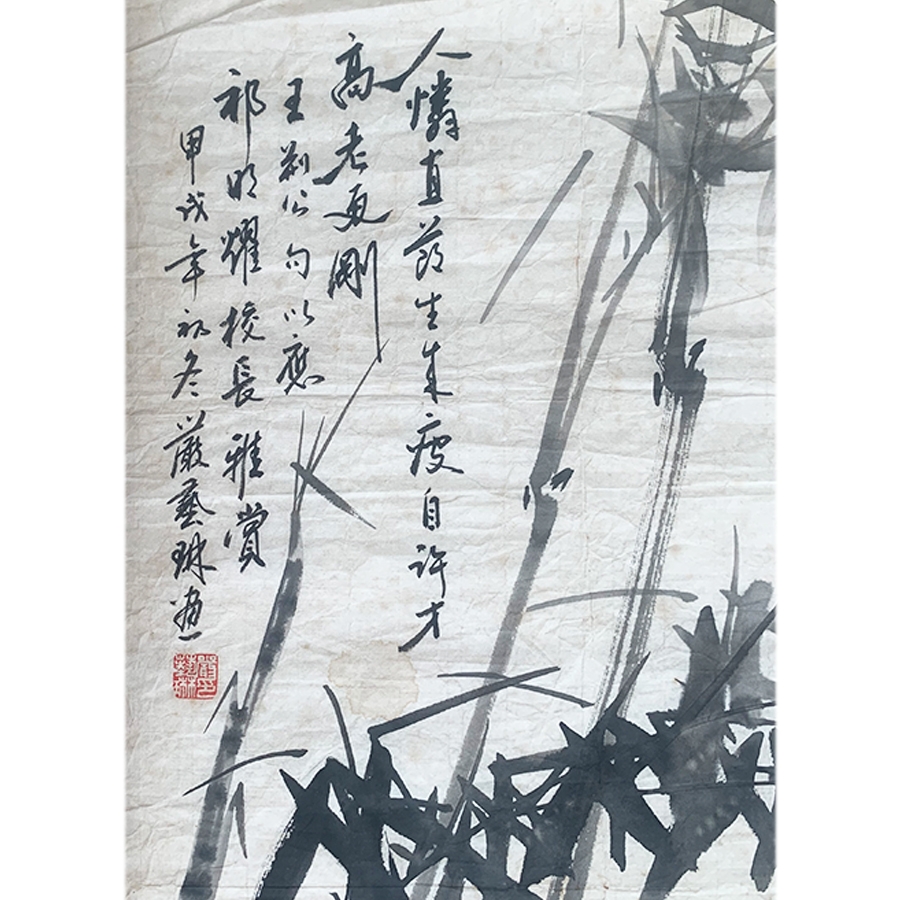 人憐直節生來瘦自許才
高老更剛
王荆公句以應
祁明耀校長雅賞
甲戌年初冬嚴藝琳畫
嚴藝琳印